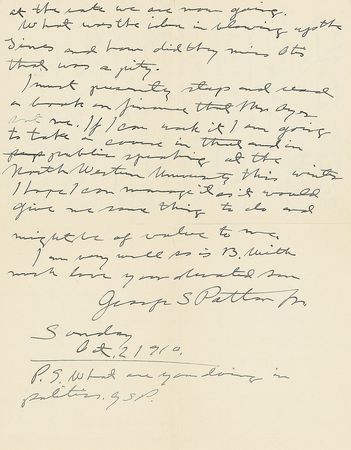 at the rate we are now going.
What was the idea in blowing up the
Times and how did they miss Otis
that was a pity.
I must presently stop and read
a book on finance that Mr. Ayer
me. If I can work it I am going
to take a course in that and in
public speaking at the
North Western University this winter
I hope I can manage it as it would
give me some thing to do and
might be of value to me.
I am very well so is B. With
much love your devoted son
George S Patton Jr.
Sunday
Oct. 2 1910.
P.S. What are you doing in
politics. GSP.